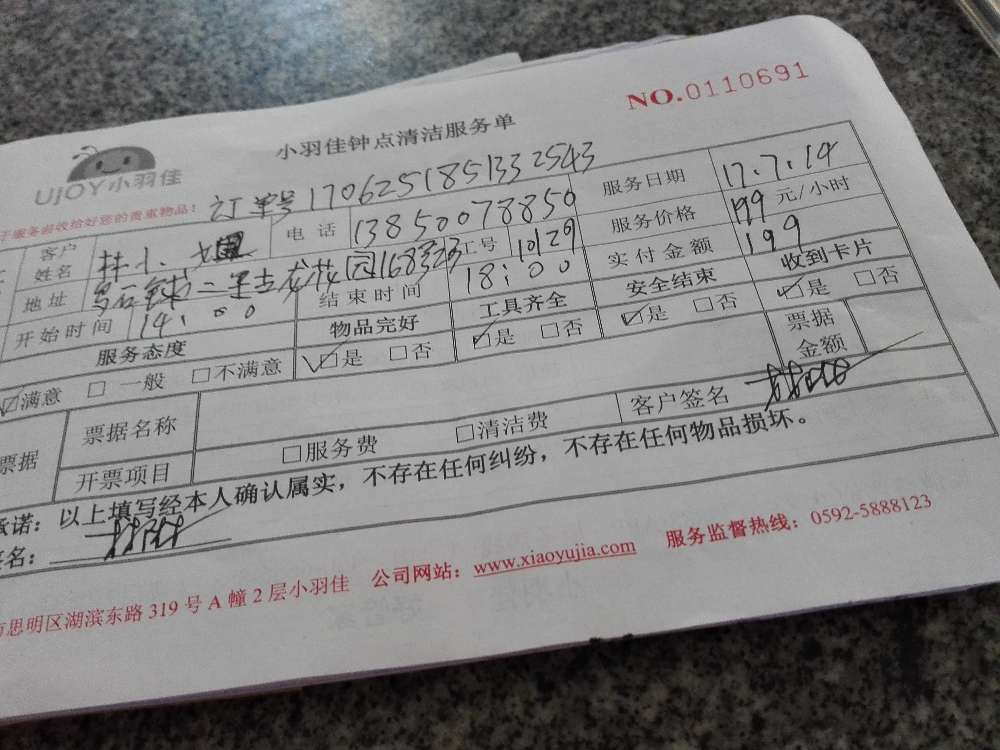 NO.0110691
小羽佳钟点清洁服务单
UJOY小羽佳
服务前收拾好您的贵重物品: 订单号170625185133 2543
客户姓名 林小姐 电话 13850078850 服务日期 17.7.14
地址 二里古龙花园168323 工号 10129 服务价格 199 元/小时
开始时间 14:00 结束时间 18:00 实付金额 199
服务态度 物品完好 工具齐全 安全结束 收到卡片
☑满意 □一般 □不满意 ☑是 □否 ☑是 □否 ☑是 □否 ☑是 □否
票据 票据名称 票据金额
开票项目 □服务费 □清洁费 客户签名
承诺:以上填写经本人确认属实,不存在任何纠纷,不存在任何物品损坏。
签名:
市思明区湖滨东路319号A幢2层小羽佳 公司网站:www.xiaoyujia.com 服务监督热线:0592-5888123